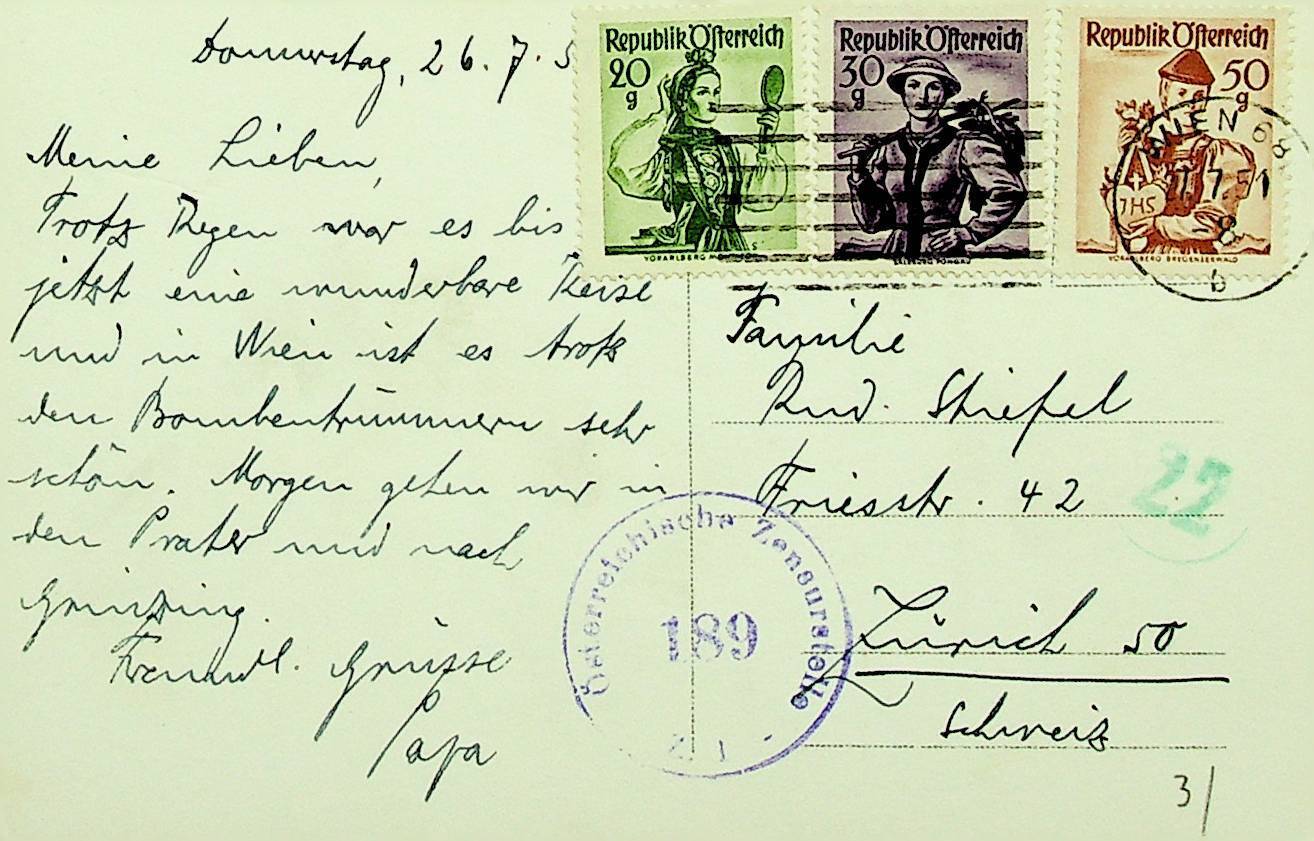 Donnerstag, 26. 7. 5
Meine Lieben,
Trotz Regen war es bis
jetzt eine wunderbare Reise
und in Wien ist es trotz
den Bombentrümmern sehr
schön. Morgen gehen wir in
den Prater und nach
Grinzing.
Freundl. Grüsse
Papa
Republik Österreich
20 g
VORARLBERG
Republik Österreich
30 g
SALZBURG PONGAU
Republik Österreich
50 g
JHS
VORARLBERG BREGENZERWALD
WIEN 68
27. 7. 51
-8
b
Familie
Rud. Stiefel
Friesstr. 42
22
Zürich 50
Schweiz
Österreichische Zensurstelle
189
3/